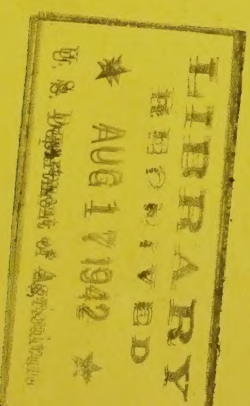 LIBRARY
RECEIVED
★ AUG 17 1942 ★
U. S. Department of Agriculture